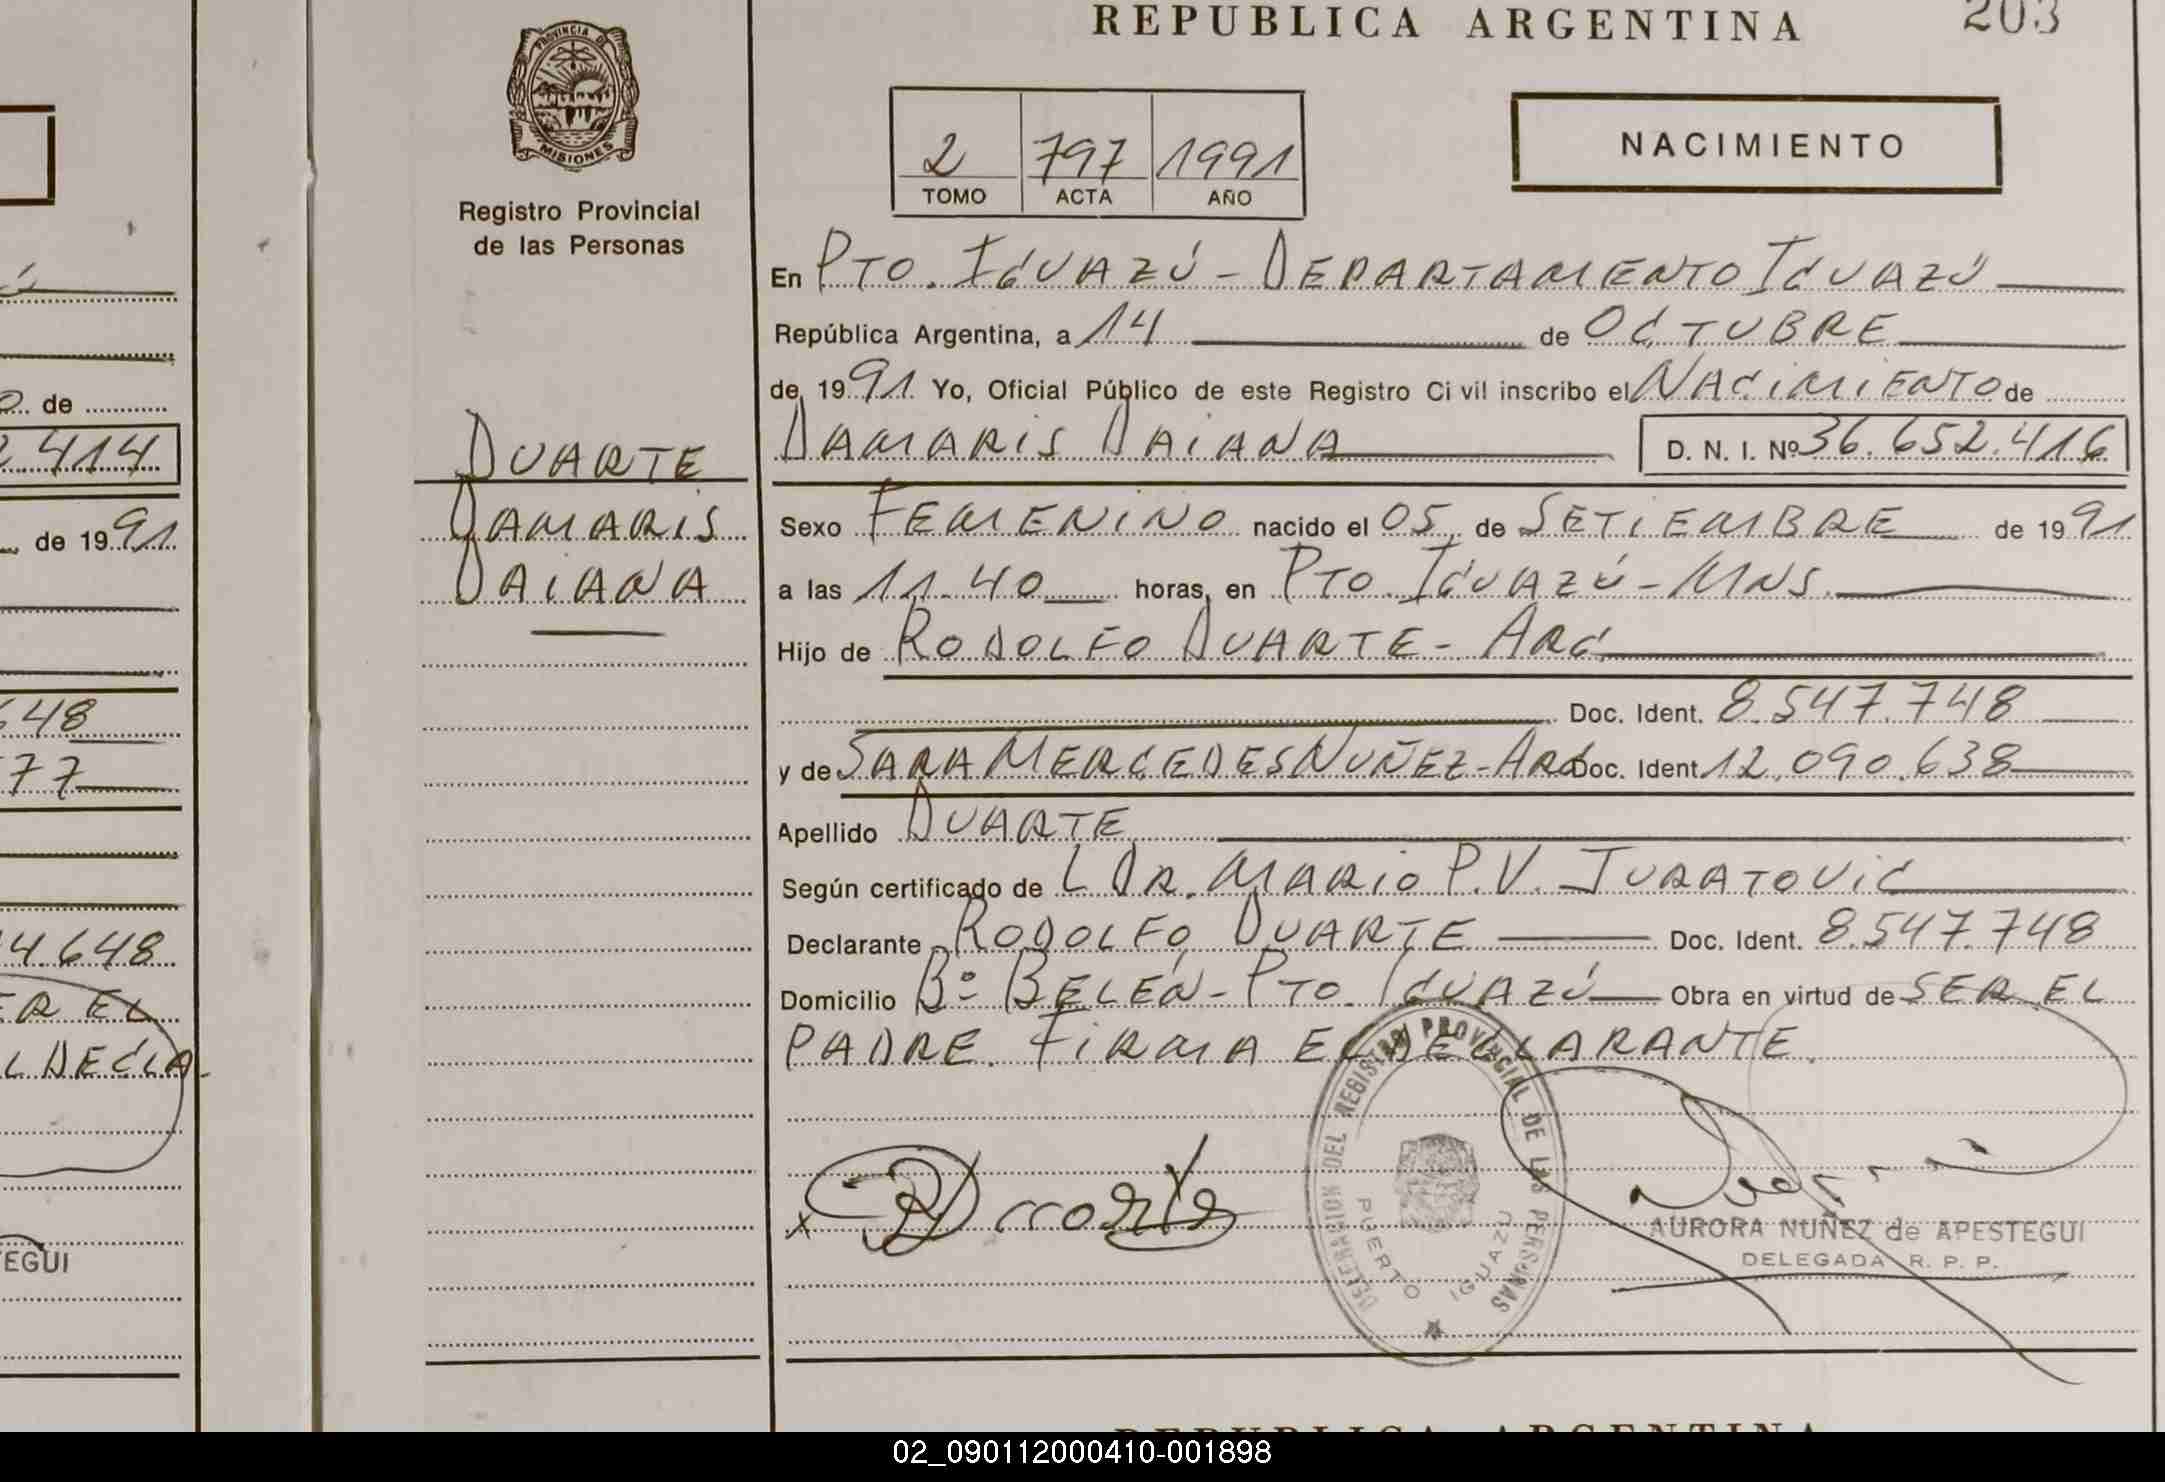 REPUBLICA ARGENTINA
203
PROVINCIA DE
MISIONES
Registro Provincial
de las Personas
2 797 1991
TOMO ACTA AÑO
NACIMIENTO
En PTO. IGUAZÚ - DEPARTAMENTO IGUAZÚ
República Argentina, a 14 de OCTUBRE
de 1991 Yo, Oficial Público de este Registro Civil inscribo el NACIMIENTO de
DAMARIS DAIANA D. N. I. Nº 36.652.416
DUARTE
DAMARIS
DAIANA
Sexo FEMENINO nacido el 05 de SETIEMBRE de 1991
a las 11.40 horas, en PTO. IGUAZÚ - MNS.
Hijo de RODOLFO DUARTE - ARG
Doc. Ident. 8.547.748
y de SARA MERCEDES NUÑEZ - ARG Doc. Ident 12.090.638
Apellido DUARTE
Según certificado de L DR. MARIO P.V. JURATOVIC
Declarante RODOLFO DUARTE Doc. Ident. 8.547.748
Domicilio Bº BELÉN - PTO. IGUAZÚ Obra en virtud de SER EL
PADRE. FIRMA EL DECLARANTE.
DELEGACION DEL REGISTRO PROVINCIAL DE LAS PERSONAS
PUERTO IGUAZU
x R Duarte
AURORA NUÑEZ de APESTEGUI
DELEGADA R. P. P.
de
2.414
de 1991
648
77
4.648
ER EL
L DECLA-
TEGUI
REPUBLICA ARGENTINA
02_090112000410-001898